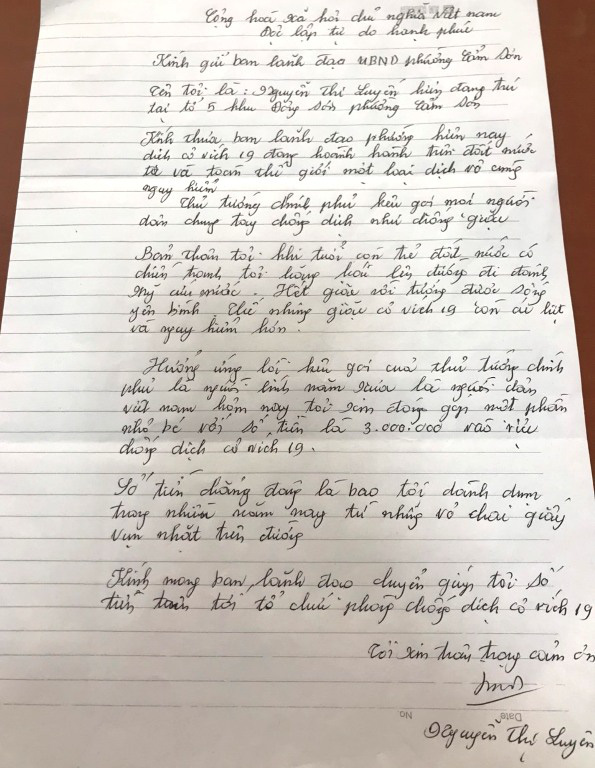 Cộng hoà xã hỏi chủ nghĩa Việt nam
Đọc lập tự do hanh phúc
Kính gửi ban lãnh đạo UBND phường Cẩm Sơn
Tên tôi là: Nguyễn Thị Luyến hiện đang trú
tại tổ 5 khu Đông Sơn phường Cẩm Sơn
Kính thưa ban lãnh đạo phường hiện nay
dịch cô vích 19 đang hoành hành trên đất nước
ta và toàn thế giới một loại dịch vô cùng
nguy hiểm
Thủ tướng chính phủ kêu gọi mọi người
dân chung tay chống dịch như chống giặc
Bản thân tôi khi tuổi còn trẻ đất nước có
chiến tranh tôi hăng hái lên đường đi đánh
Mỹ cứu nước. Hết giặc rồi tưởng được sống
yên bình. Thế nhưng giặc cô vích 19 còn ác liệt
và nguy hiểm hơn.
Hưởng ứng lời kêu gọi của thủ tướng chính
phủ là người lính năm xưa là người dân
việt nam hôm nay tôi xin đóng góp một phần
nhỏ bé với số tiền là 3.000.000 vào việc
chống dịch cô vích 19.
Số tiền chẳng đáng là bao tôi dành dụm
trong nhiều năm nay từ những vỏ chai giấy
vụn nhặt trên đường
Kính mong ban lãnh đạo chuyển giúp tôi số
tiền tới tổ chức phòng chống dịch cô vích 19
Tôi xin trân trọng cảm ơn
Date
No
Nguyễn Thị Luyến